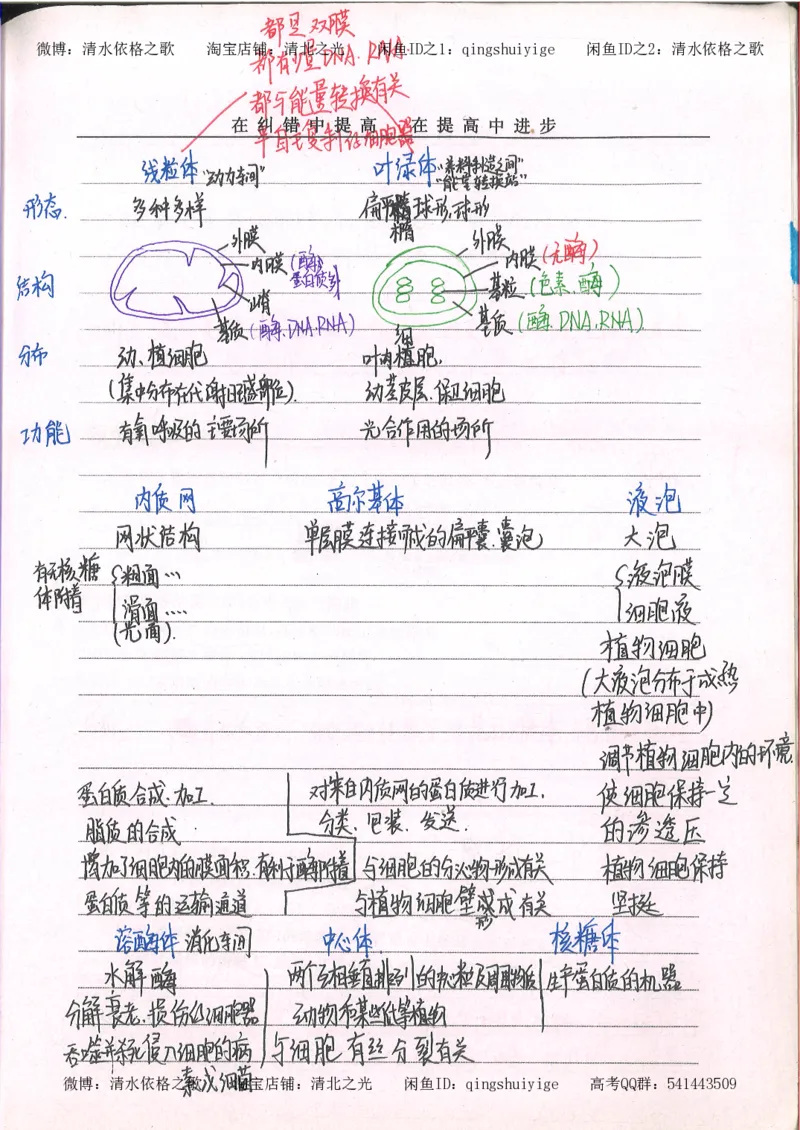 都是双膜
微博：清水依格之歌 淘宝店铺：清北之光 闲鱼ID之1：qingshuiyige 闲鱼ID之2：清水依格之歌
都有少量DNA、RNA
都与能量转换有关
在纠错中提高 在提高中进步
半自主复制性细胞器
线粒体 "动力车间" 叶绿体 "养料制造车间" "能量转换站"
形态. 多种多样 扁平椭球形,球形
椭
结构
外膜
内膜 (酶 蛋白质多)
嵴
基质 (酶、DNA、RNA)
外膜
内膜 (无酶)
基粒 (色素、酶)
基质 (酶、DNA、RNA)
分布 动、植细胞 叶肉细胞,
(集中分布在代谢旺盛部位). 幼茎皮层、保卫细胞
功能 有氧呼吸的主要场所 光合作用的场所
内质网 高尔基体 液泡
网状结构 单层膜连接而成的扁平囊、囊泡 大泡
有无核糖体附着 粗面… 液泡膜
滑面…. 细胞液
(光面).
植物细胞
(大液泡分布于成熟
植物细胞中)
调节植物细胞内的环境
蛋白质合成、加工. 对来自内质网的蛋白质进行加工, 使细胞保持一定
脂质的合成 分类、包装、发送. 的渗透压
增加了细胞内的膜面积,有利于酶附着 与细胞的分泌物形成有关 植物细胞保持
蛋白质等的运输通道 与植物细胞壁形成有关 坚挺
溶酶体 消化车间 中心体 核糖体
水解酶 两个互相垂直排列的中心粒及周围物质 生产蛋白质的机器
分解衰老、损伤的细胞器 动物和某些低等植物
吞噬并杀死侵入细胞的病 与细胞有丝分裂有关
毒或细菌
微博：清水依格之歌 淘宝店铺：清北之光 闲鱼ID：qingshuiyige 高考QQ群：541443509